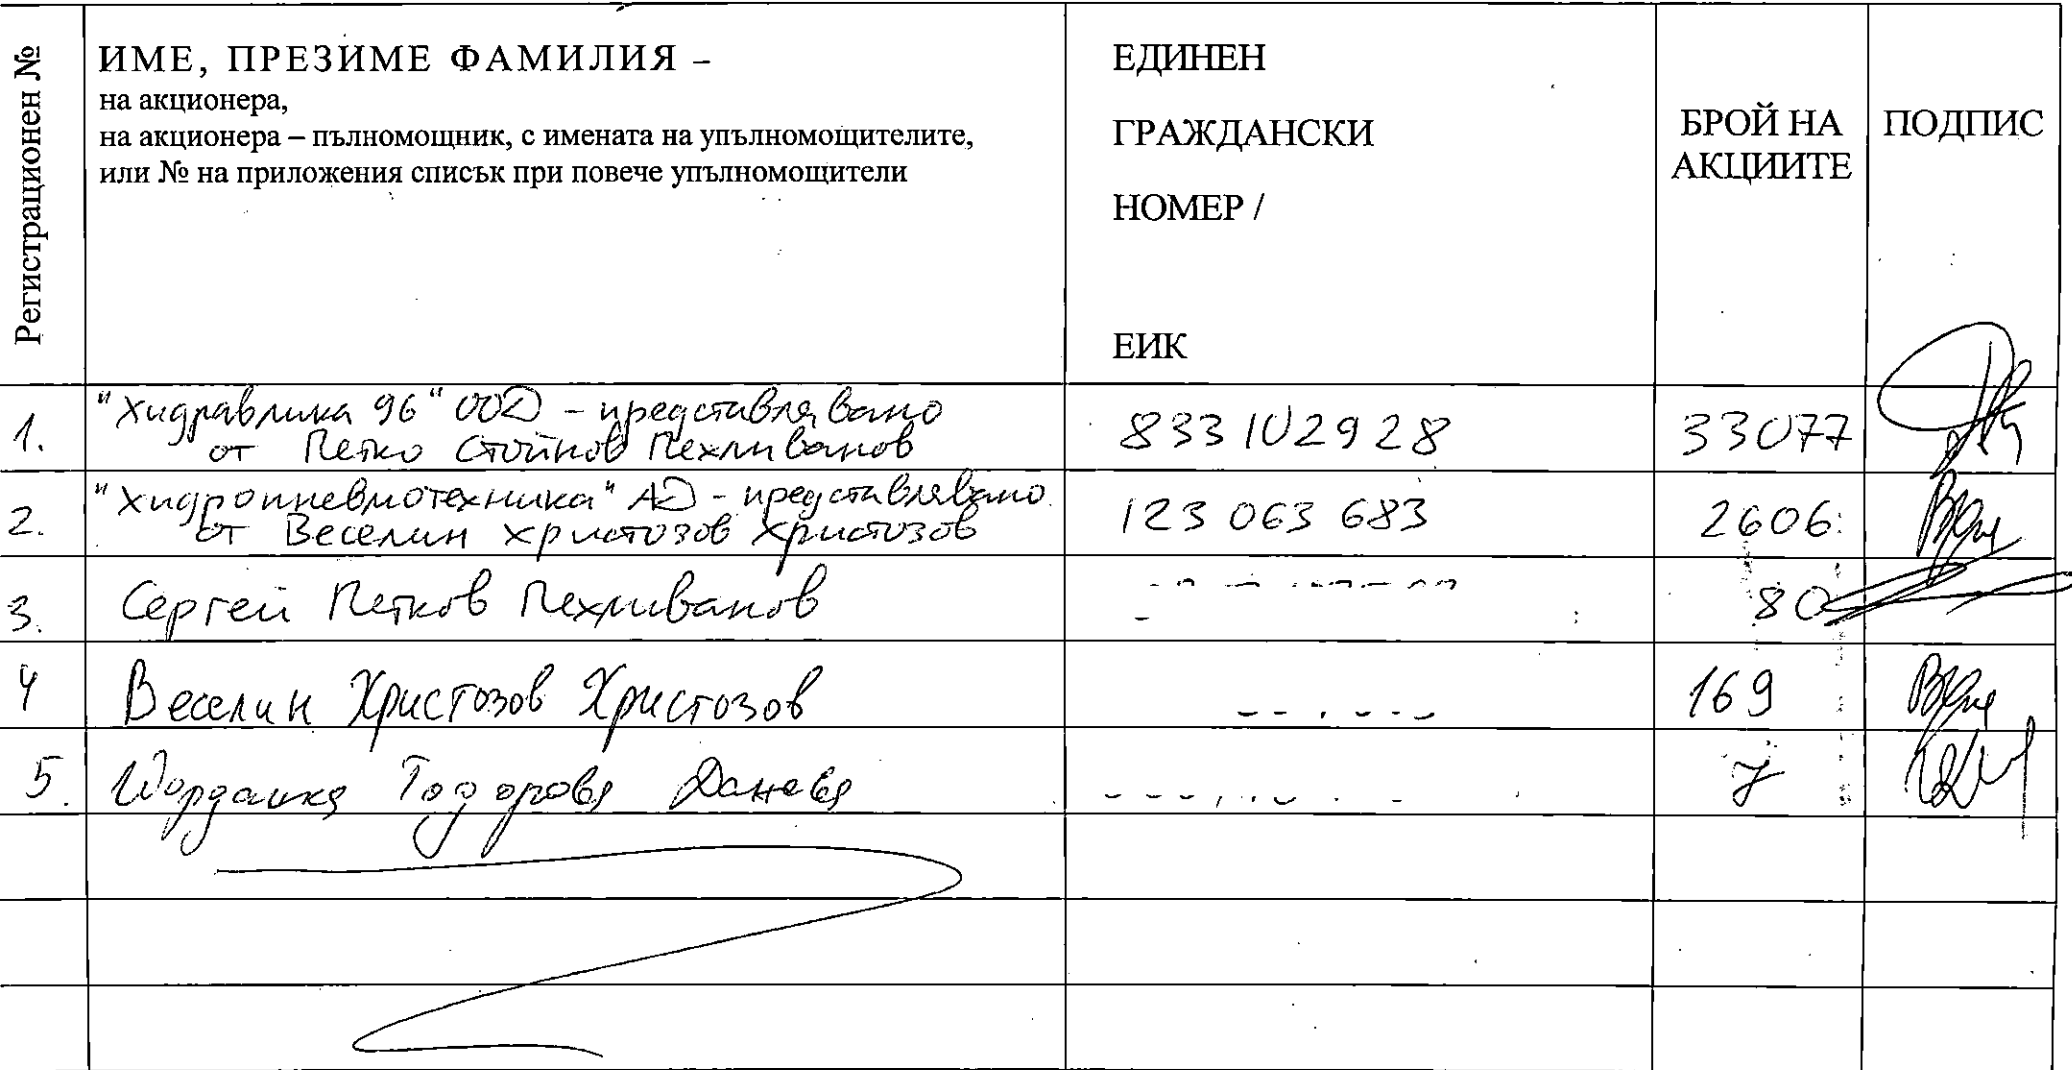 Регистрационен №
ИМЕ, ПРЕЗИМЕ ФАМИЛИЯ –
на акционера,
на акционера – пълномощник, с имената на упълномощителите,
или № на приложения списък при повече упълномощители
ЕДИНЕН
ГРАЖДАНСКИ
НОМЕР /
ЕИК
БРОЙ НА
АКЦИИТЕ
ПОДПИС
1. "Хидравлика 96" ООД - представлявано
от Петко Стойнов Пехливанов
833102928 33077
2. "Хидропневмотехника" АД - представлявано
от Веселин Христозов Христозов
123 063 683 2606
3. Сергей Петков Пехливанов 80
4 Веселин Христозов Христозов 169
5. Йорданка Тодорова Данева 7